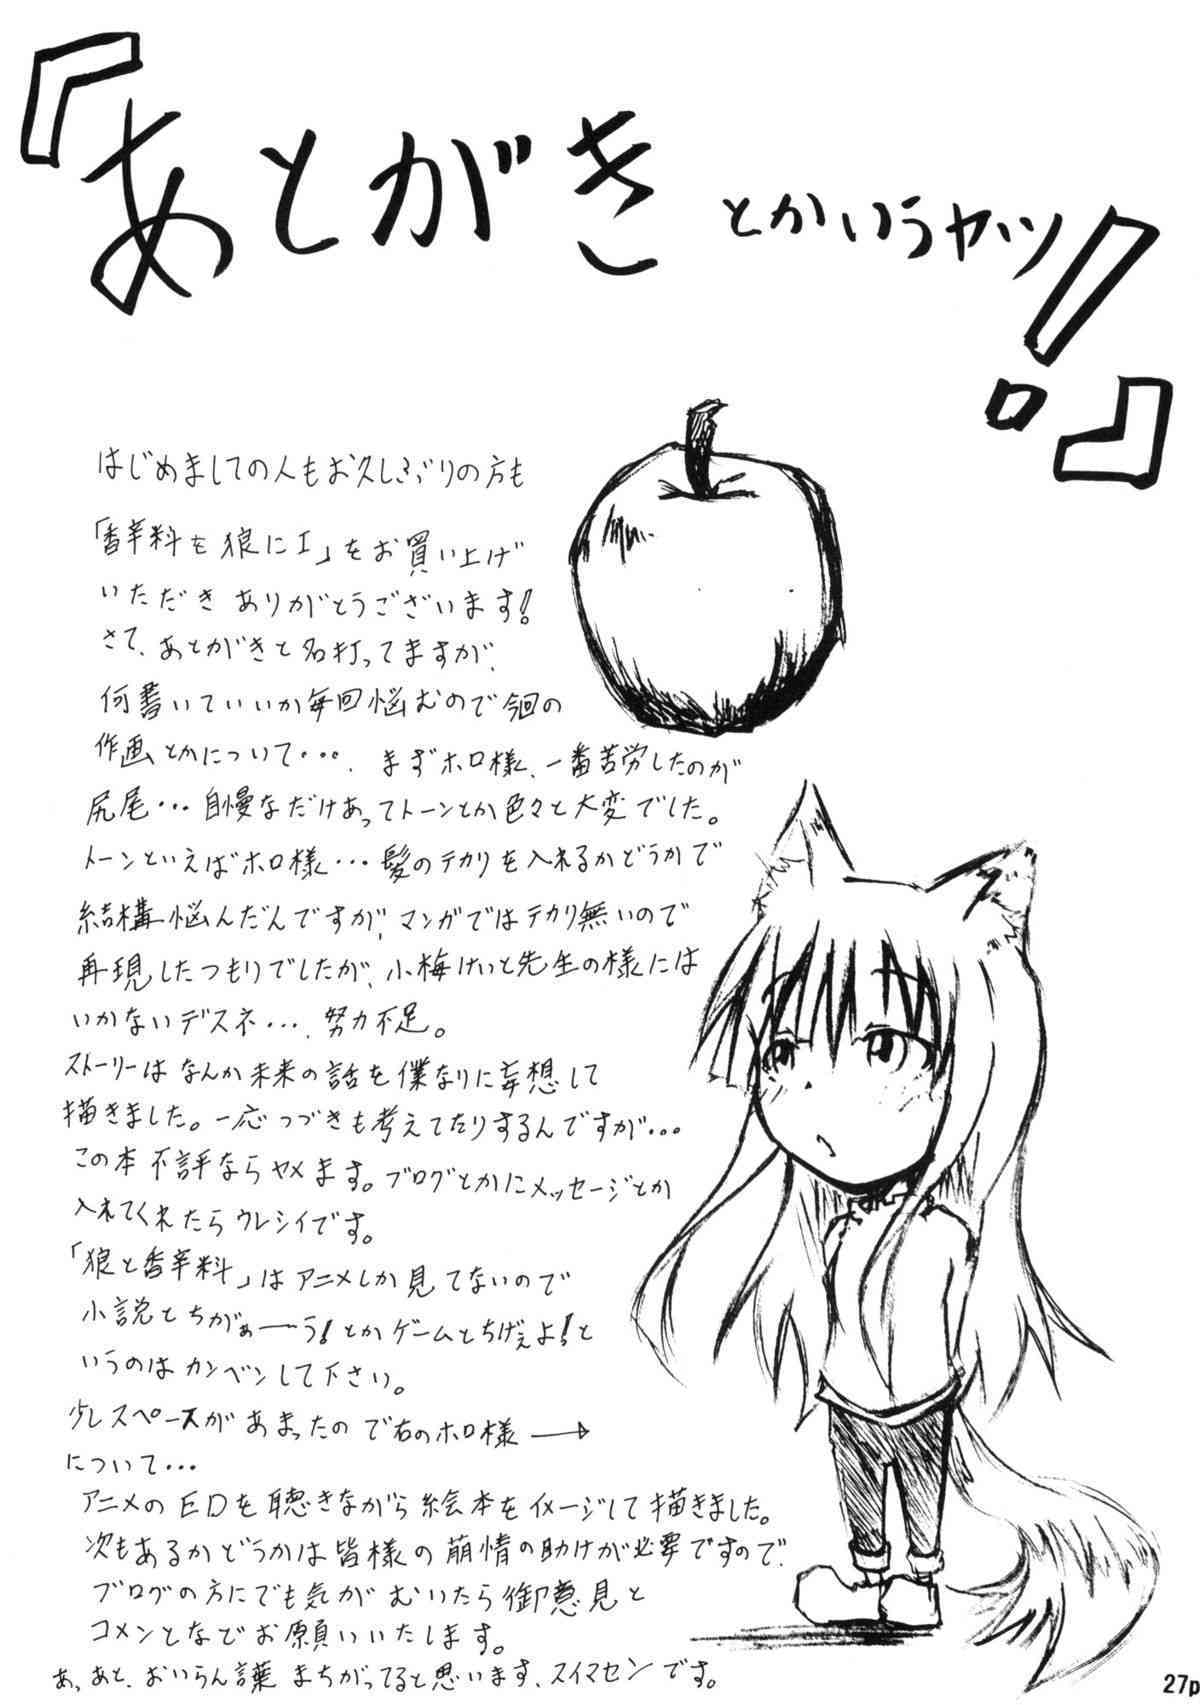 『あとがきとかいうヤツ!』
はじめましての人もお久しぶりの方も
「香辛料を狼にI」をお買い上げ
いただき ありがとうございます!
さて、あとがきと名打ってますが、
何書いていいか毎回悩むので今回の
作画とかについて・・・、まずホロ様、一番苦労したのが
尻尾・・・自慢なだけあってトーンとか色々と大変でした。
トーンといえばホロ様・・・髪のテカリを入れるかどうかで
結構悩んだんですが、マンガではテカリ無いので
再現したつもりでしたが、小梅けいと先生の様には
いかないデスネ・・・、努力不足。
ストーリーはなんか未来の話を僕なりに妄想して
描きました。一応つづきも考えてたりするんですが・・・
この本不評ならヤメます。ブログとかにメッセージとか
入れてくれたらウレシイです。
「狼と香辛料」はアニメしか見てないので
小説とちがぁーーう!とかゲームとちげぇよ!と
いうのはカンベンして下さい。
少しスペースがあまったので右のホロ様 →
について・・・
アニメのEDを聴きながら絵本をイメージして描きました。
次もあるかどうかは皆様の萌情の助けが必要ですので、
ブログの方にでも気がむいたら御意見と
コメントなでお願いいたします。
あ、あと、おいらん言葉 まちがってると思います、スイマセンです。
27p